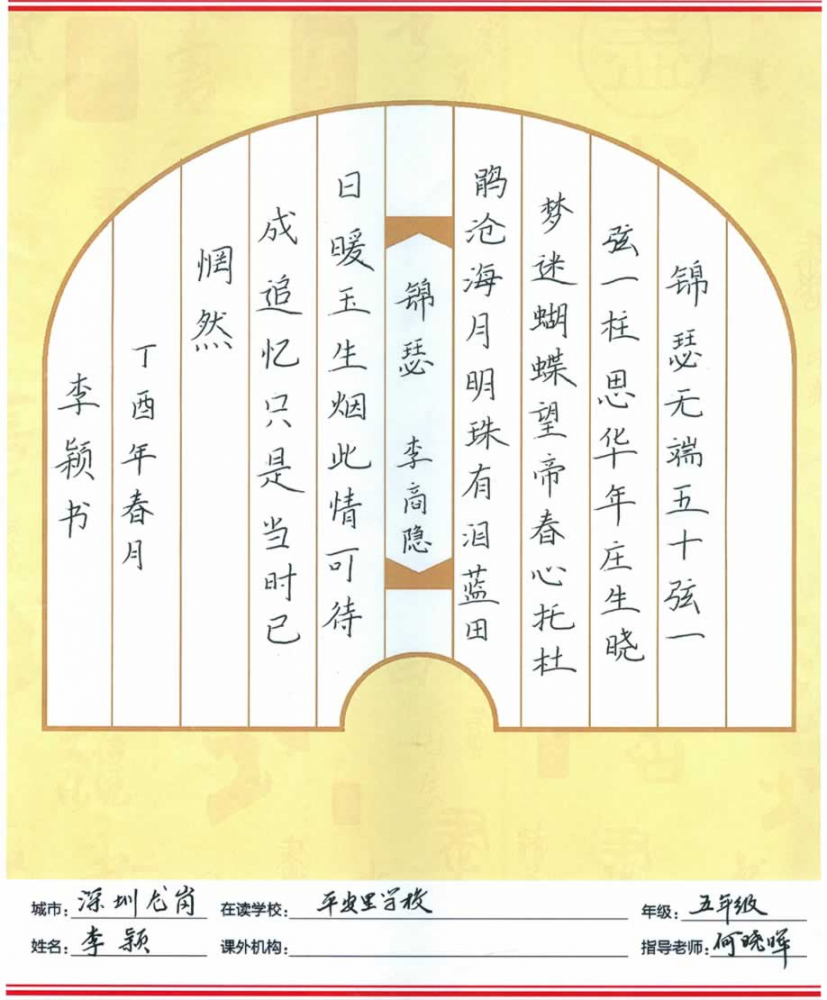 锦瑟无端五十弦一
弦一柱思华年庄生晓
梦迷蝴蝶望帝春心托杜
鹃沧海月明珠有泪蓝田
锦瑟 李商隐
日暖玉生烟此情可待
成追忆只是当时已
惘然
丁酉年春月
李颖书
城市:深圳龙岗 在读学校:平安里学校 年级:五年级
姓名:李颖 课外机构: 指导老师:何晓晖